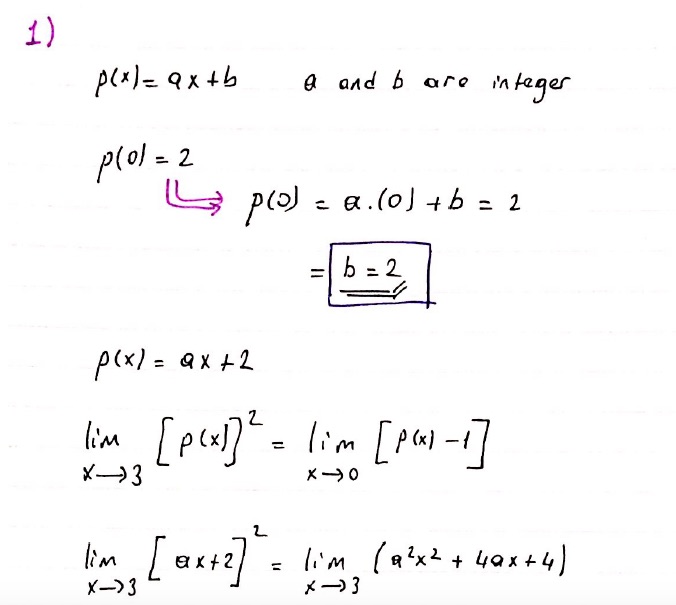 1)
p(x) = ax + b a and b are integer
p(0) = 2
p(0) = a.(0) + b = 2
= b = 2
p(x) = ax + 2
lim x→3 [p(x)]² = lim x→0 [p(x) - 1]
lim x→3 [ax + 2]² = lim x→3 (a²x² + 4ax + 4)